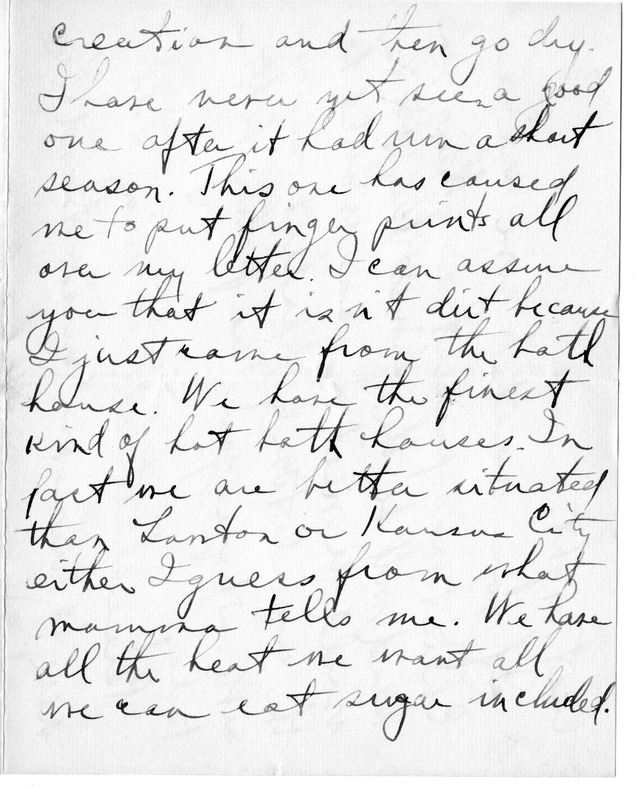 creation and then go dry.
I have never yet seen a good
one after it had run a short
season. This one has caused
me to put finger prints all
over my letter. I can assure
you that it isn't dirt because
I just came from the bath
house. We have the finest
kind of hot bath houses. In
fact we are better situated
than Lawton or Kansas City
either I guess from what
mamma tells me. We have
all the heat we want all
we can eat sugar included.